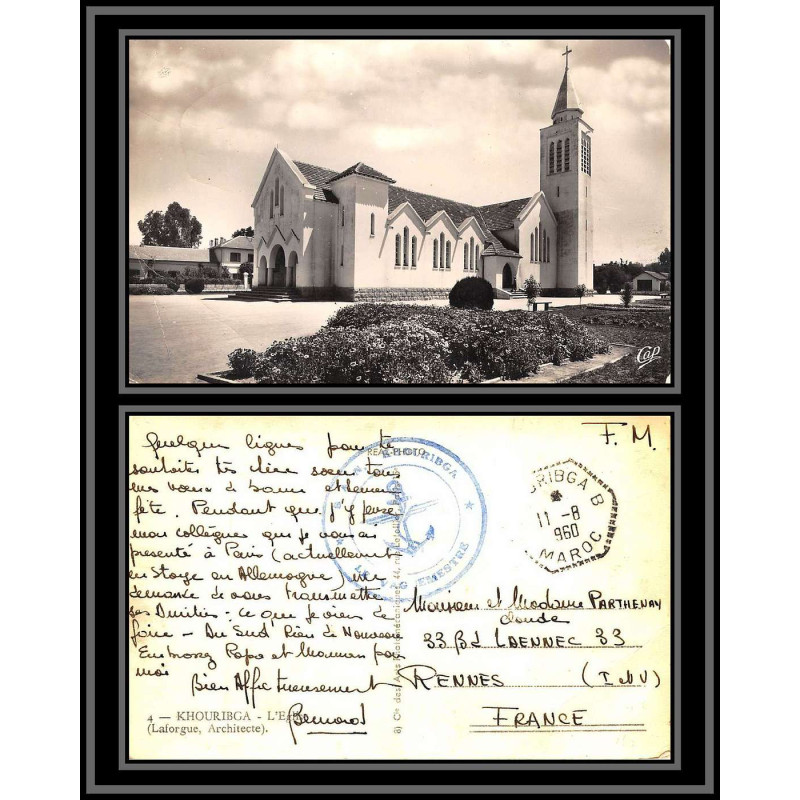 Cap
F. M.
Quelques lignes pour te
REAL-PHOTO
souhaiter très chère soeur tous
mes voeux de bonne et heureuse
fête. Pendant que j'y pense
mon collègue que je vous ai
présenté à Paris (actuellement
en Stage en Allemagne) me
demande de vous transmettre
ses Amitiés - ce que je viens de
faire - Du Sud Rien de Nouveau
Embrassez Papa et Maman pour
moi
Bien Affectueusement
Bernard
4 — KHOURIBGA - L'Eglise
(Laforgue, Architecte).
KHOURIBGA
RIBGA B
11-8
960
MAROC
Monsieur et Madame PARTHENAY
Claude
33 Bd LAENNEC 33
RENNES (I & V)
FRANCE